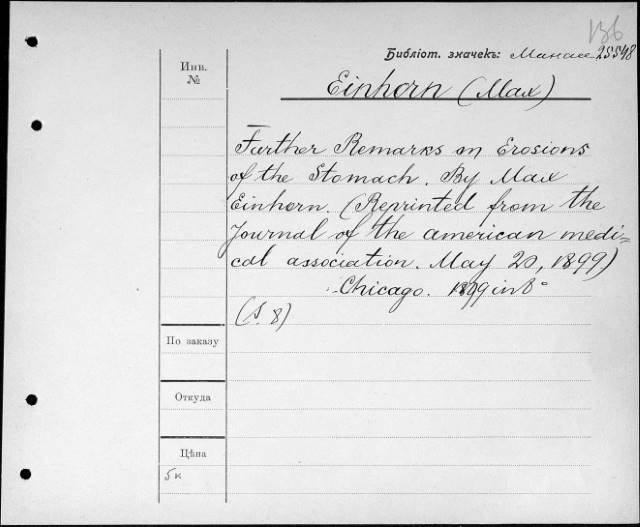 136
Библіот. значекъ: Манас 25548
Инв.
№
Einhorn (Max)
Further Remarks on Erosions
of the Stomach. By Max
Einhorn. (Reprinted from the
Journal of the american medi=
cal association. May 20, 1899)
Chicago. 1899 in 8°
(S. 8)
По заказу
Откуда
Цѣна
5к